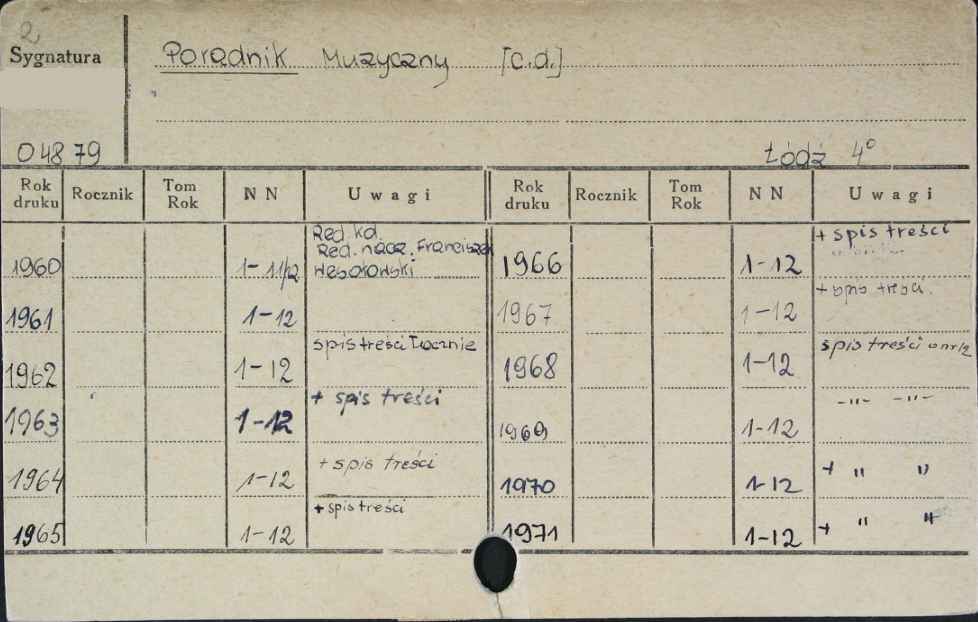 2
Sygnatura
Poradnik Muzyczny [c.d.]
04879
Łódź 4°
Rok druku Rocznik Tom Rok NN Uwagi Rok druku Rocznik Tom Rok NN Uwagi
1960 1-11/12 Red. kol. Red. nacz. Franciszek Wesołowski 1966 1-12 + spis treści
1961 1-12 1967 1-12 + spis treści.
1962 1-12 spis treści łącznie 1968 1-12 spis treści w nr 12
1963 1-12 + spis treści 1969 1-12 -"- -"-
1964 1-12 + spis treści 1970 1-12 + " "
1965 1-12 + spis treści 1971 1-12 + " "